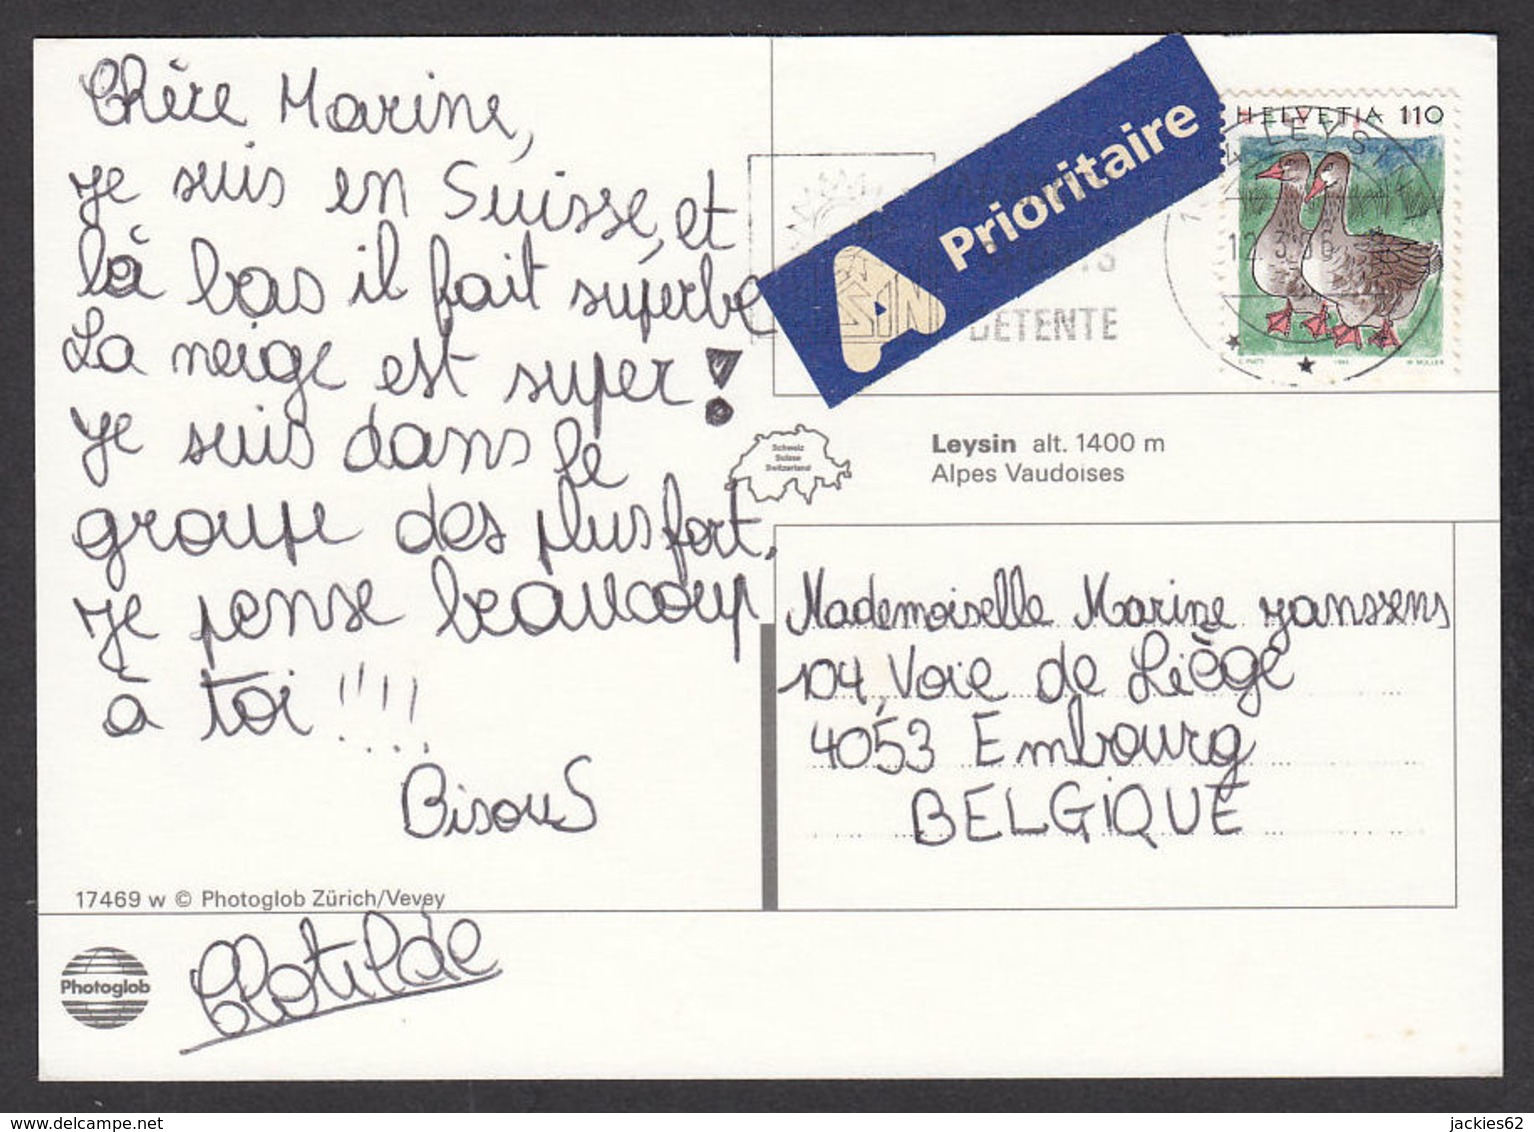 Chère Marine,
je suis en Suisse, et
là bas il fait superbe
La neige est super!
je suis dans le
groupe des plus fort.
je pense beaucoup
à toi !!!!
Bisous
17469 w © Photoglob Zürich/Vevey
Photoglob
Clotilde
A Prioritaire
HELVETIA 110
LEYSIN
12.3.96
DÉTENTE
Schweiz
Suisse
Switzerland
Leysin alt. 1400 m
Alpes Vaudoises
Mademoiselle Marine Janssens
104, Voie de Liège
4053 Embourg
BELGIQUE
jackies62